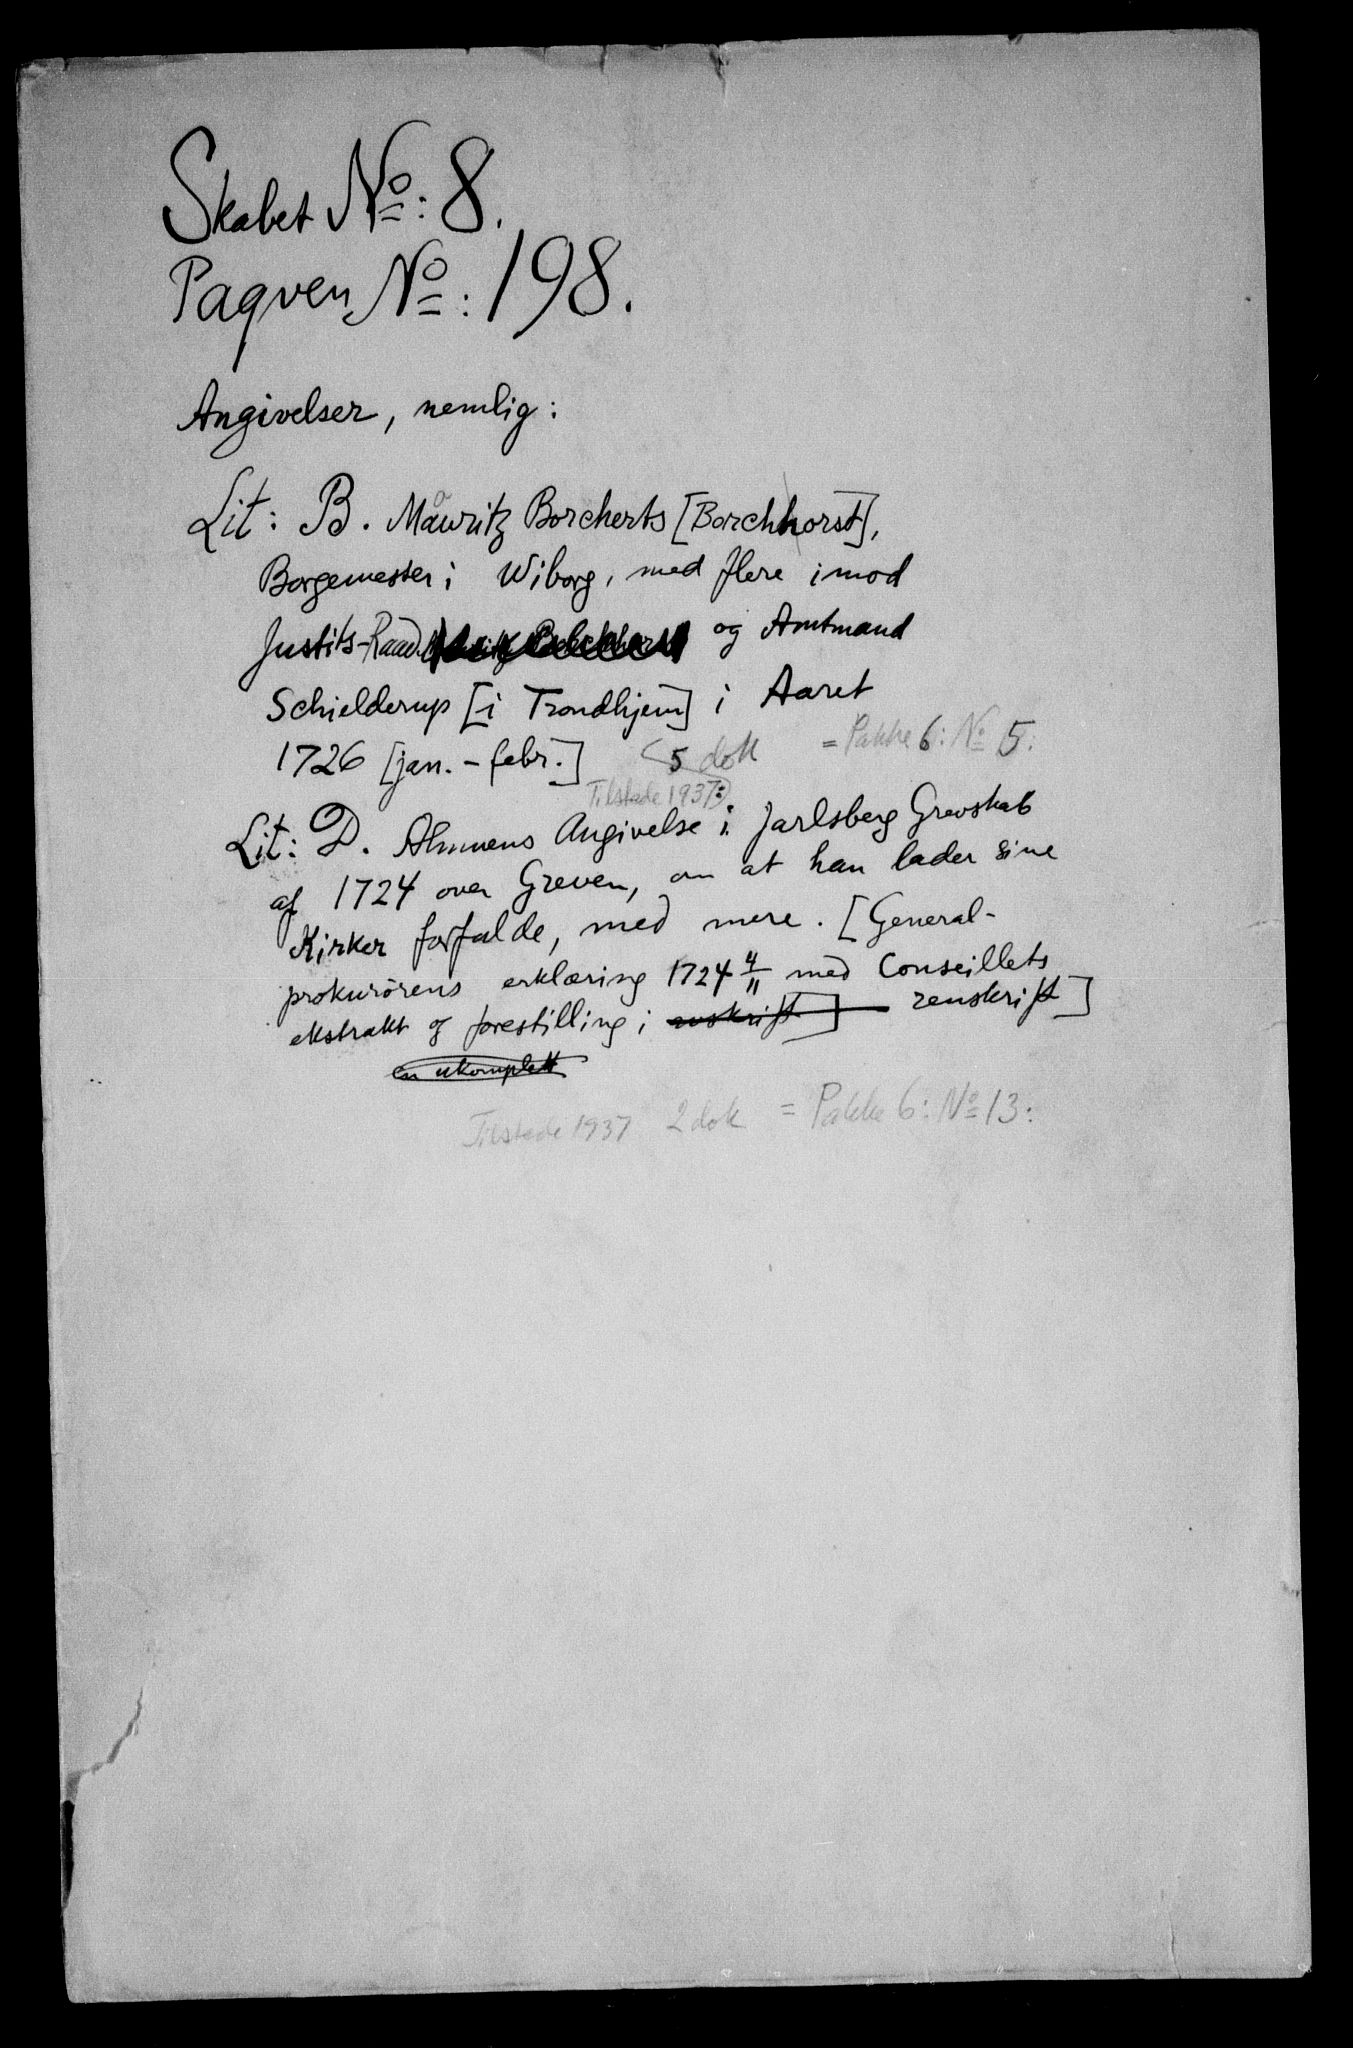 Skabet No: 8.
Paqven No: 198.
Angivelser, nemlig:
Lit: B. Mauritz Borcherts [Borchhorst],
Borgemester i Wiborg, med flere imod
Justits-Raad og Amtmand
Schielderup [i Trondhjem] i Aaret
1726 [jan. - febr.] (5 dok = Pakke 6: No 5:
Tilstede 1937:)
Lit: D. Almuens Angivelse i Jarlsberg Grevskab
af 1724 over Greven, om at han lader sine
Kirker forfalde, med mere. [General-
prokurørens erklæring 1724 4/11 med Conseillets
ekstrakt og forestilling i avskrift] renskrift]
en ukomplett
Tilstede 1937 2 dok = Pakke 6: No 13: